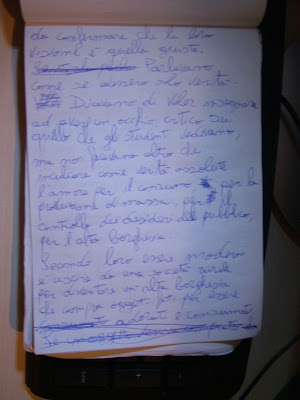 da confermare che la loro
visione è quella giusta.
Parlavano,
come se fossero solo verità.
Dicevano di voler insegnare
ad avere un occhio critico su
quello che gli studenti vedevano,
ma non facevano altro che
inculcare come verità assolute
l'amore per il consumo, per la
produzione di massa, per il
controllo dei desideri del pubblico,
per l'alta borghesia.
Secondo loro essere moderni
è uscire da una società rurale
per diventare un'alta borghesia
che compra oggetti per essere
adorati e consumati